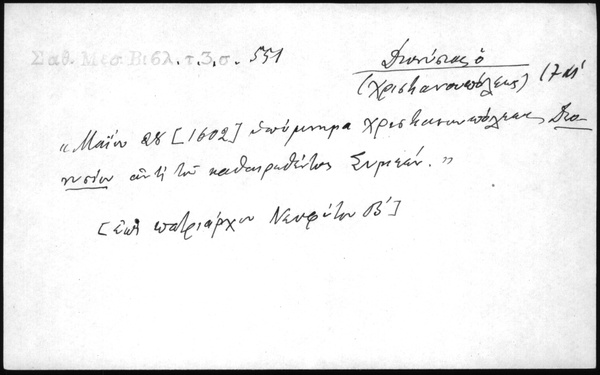 Σαθ. Μεσ. Βιβλ. τ. 3, σ. 551
Διονύσιος ὁ
(Χριστιανουπόλεως) 17 αἰ
"Μαΐου 28 [1602] ὑπόμνημα Χριστιανουπόλεως Διο-
νυσίου ἀντὶ τοῦ καθαιρεθέντος Συμεών."
[ἐπὶ πατριάρχου Νεοφύτου Β']